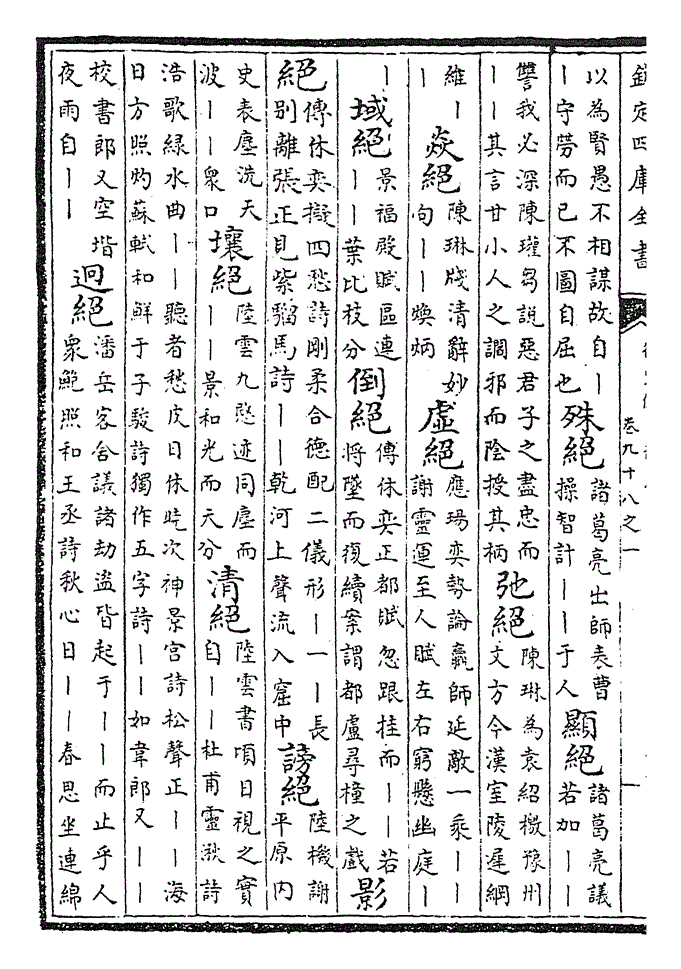 欽定四庫全書
卷九十八之一
一
以為賢愚不相謀故自｜
｜守勞而已不圖自屈也
殊絕
諸葛亮出師表曹
操智計｜｜于人
顯絕
諸葛亮議
若加｜｜
讐我必深陳瓘芻說惡君子之盡忠而
｜｜其言甘小人之讇邪而陰授其柄
弛絕
陳琳為袁紹檄豫州
文方今漢室陵遲綱
維｜
｜
焱絕
陳琳牋清辭妙
句｜｜煥炳
虛絕
應瑒奕勢論羸師延敵一乘｜｜
謝靈運至人賦左右窮懸幽庭｜
｜
域絕
景福殿賦區連
｜｜葉比枝分
倒絕
傅休奕正都賦忽跟挂而｜｜若
將墜而復續案謂都盧尋橦之戲
影
絕
傅休奕擬四愁詩剛柔合德配二儀形｜一｜長
別離張正見紫騮馬詩｜｜乾河上聲流入窟中
謗絕
陸機謝
平原內
史表塵洗天
波｜｜衆口
壤絕
陸雲九愍迹同塵而
｜｜景和光而天分
清絕
陸雲書頃日視之實
自｜｜杜甫靈湫詩
浩歌綠水曲｜｜聽者愁皮日休曉次神景宮詩松聲正｜｜海
日方照灼蘇軾和鮮于子駿詩獨作五字詩｜｜如韋郎又｜｜
校書郎又空堦
夜雨自｜｜
迥絕
潘岳客舍議諸劫盜皆起于｜｜而止乎人
衆鮑照和王丞詩秋心日｜｜春思坐連綿